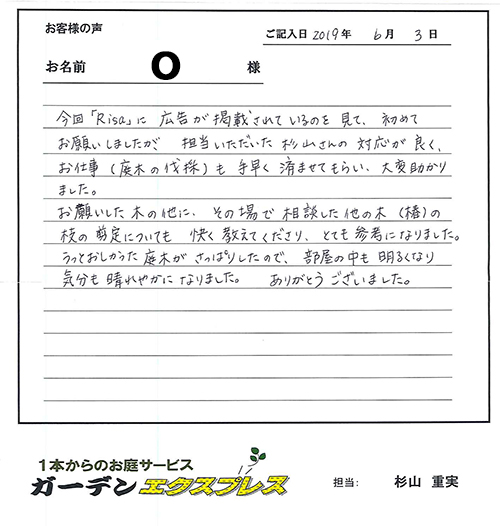 お客様の声
ご記入日 2019年 6月 3日
お名前 O 様
今回「Risa」に 広告が 掲載されているのを 見て、初めて
お願いしましたが 担当いただいた 杉山さんの 対応が 良く、
お仕事(庭木の伐採)も 手早く 済ませてもらい、大変助かり
ました。
お願いした 木の他に、その場で 相談した他の木(椿)の
枝の 剪定についても 快く 教えてくださり、とても 参考になりました。
うっとおしかった 庭木が さっぱりしたので、部屋の中も 明るくなり
気分も 晴れやかに なりました。 ありがとう ございました。
1本からのお庭サービス
ガーデンエクスプレス
担当: 杉山 重実